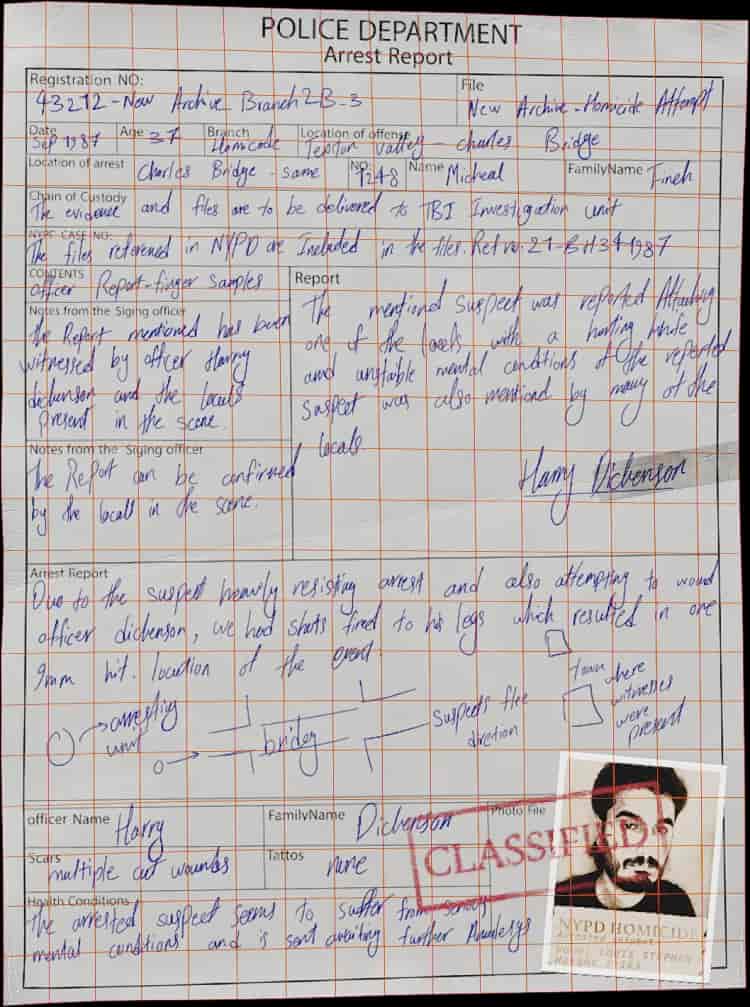 POLICE DEPARTMENT
Arrest Report
Registration NO:
43212-New Archive Branch 2B-3
File
New Archive-Homicide Attempt
Date
Sep 1987
Age 37
Branch
Homicode
Location of offense
Valley - charles Bridge
Location of arrest
Charles Bridge - same
NO:
1248
Name Micheal
FamilyName Fineh
Chain of Custody
The evidence and files are to be delivered to TBI Investigation unit
NYPD CASE NO:
The files referened in NYPD are Included in the files. Ref no. 21-BH34-1987
CONTENTS
officer Report-finger samples
Notes from the Siging officer
the Report mentioned has been
witnessed by officer Harry
dickenson and the locals
Present in the scene.
Notes from the Siging officer
the Report can be confirmed
by the locall in the scene.
Report
The mentioned suspect was reported Attacking
one of the locals with a hunting knife
and unstable mental conditions of the reported
suspect was also mentiond by many of the
locals
Harry Dickenson
Arrest Report
Due to the suspect heavily resisting arrest and also attempting to wound
officer dickenson, we had shots fired to his legs which resulted in one
9mm hit. location of the event.
arresting
unit
bridge
Suspects flee
diretion
Town where
witnesses
were
present
officer Name Harry
FamilyName Dickenson
Photo File
Scars
multiple cut wounds
Tattos
none
CLASSIFIED
Health Conditions
the arrested suspect seems to suffer from serious
mental conditions and is sent awaiting further Analesys
NYPD HOMICIDE
LOUIS STEPHEN